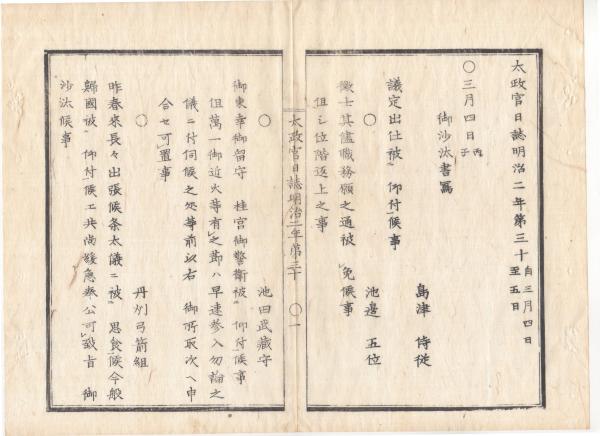 太政官日誌明治二年第三十 自三月四日 至五日
○三月四日 丙子
御沙汰書寫
島津侍従
議定出仕被 仰付候事
○
池邊五位
徴士其儘職務願之通被 免候事
但シ位階返上之事
太政官日誌明治二年第三十 ○一
○
池田武蔵守
御東幸御留守 桂宮御警衛被 仰付候事
但萬一御近火等有之節ハ早速参入勿論之
儀ニ付伺候之処等前以右 御所取次ヘ申
合セ可置事
○
丹州弓箭組
昨春來長々出張候条太儀ニ被 思食候今般
歸國被 仰付候エ共尚緩急奉公可致旨 御
沙汰候事